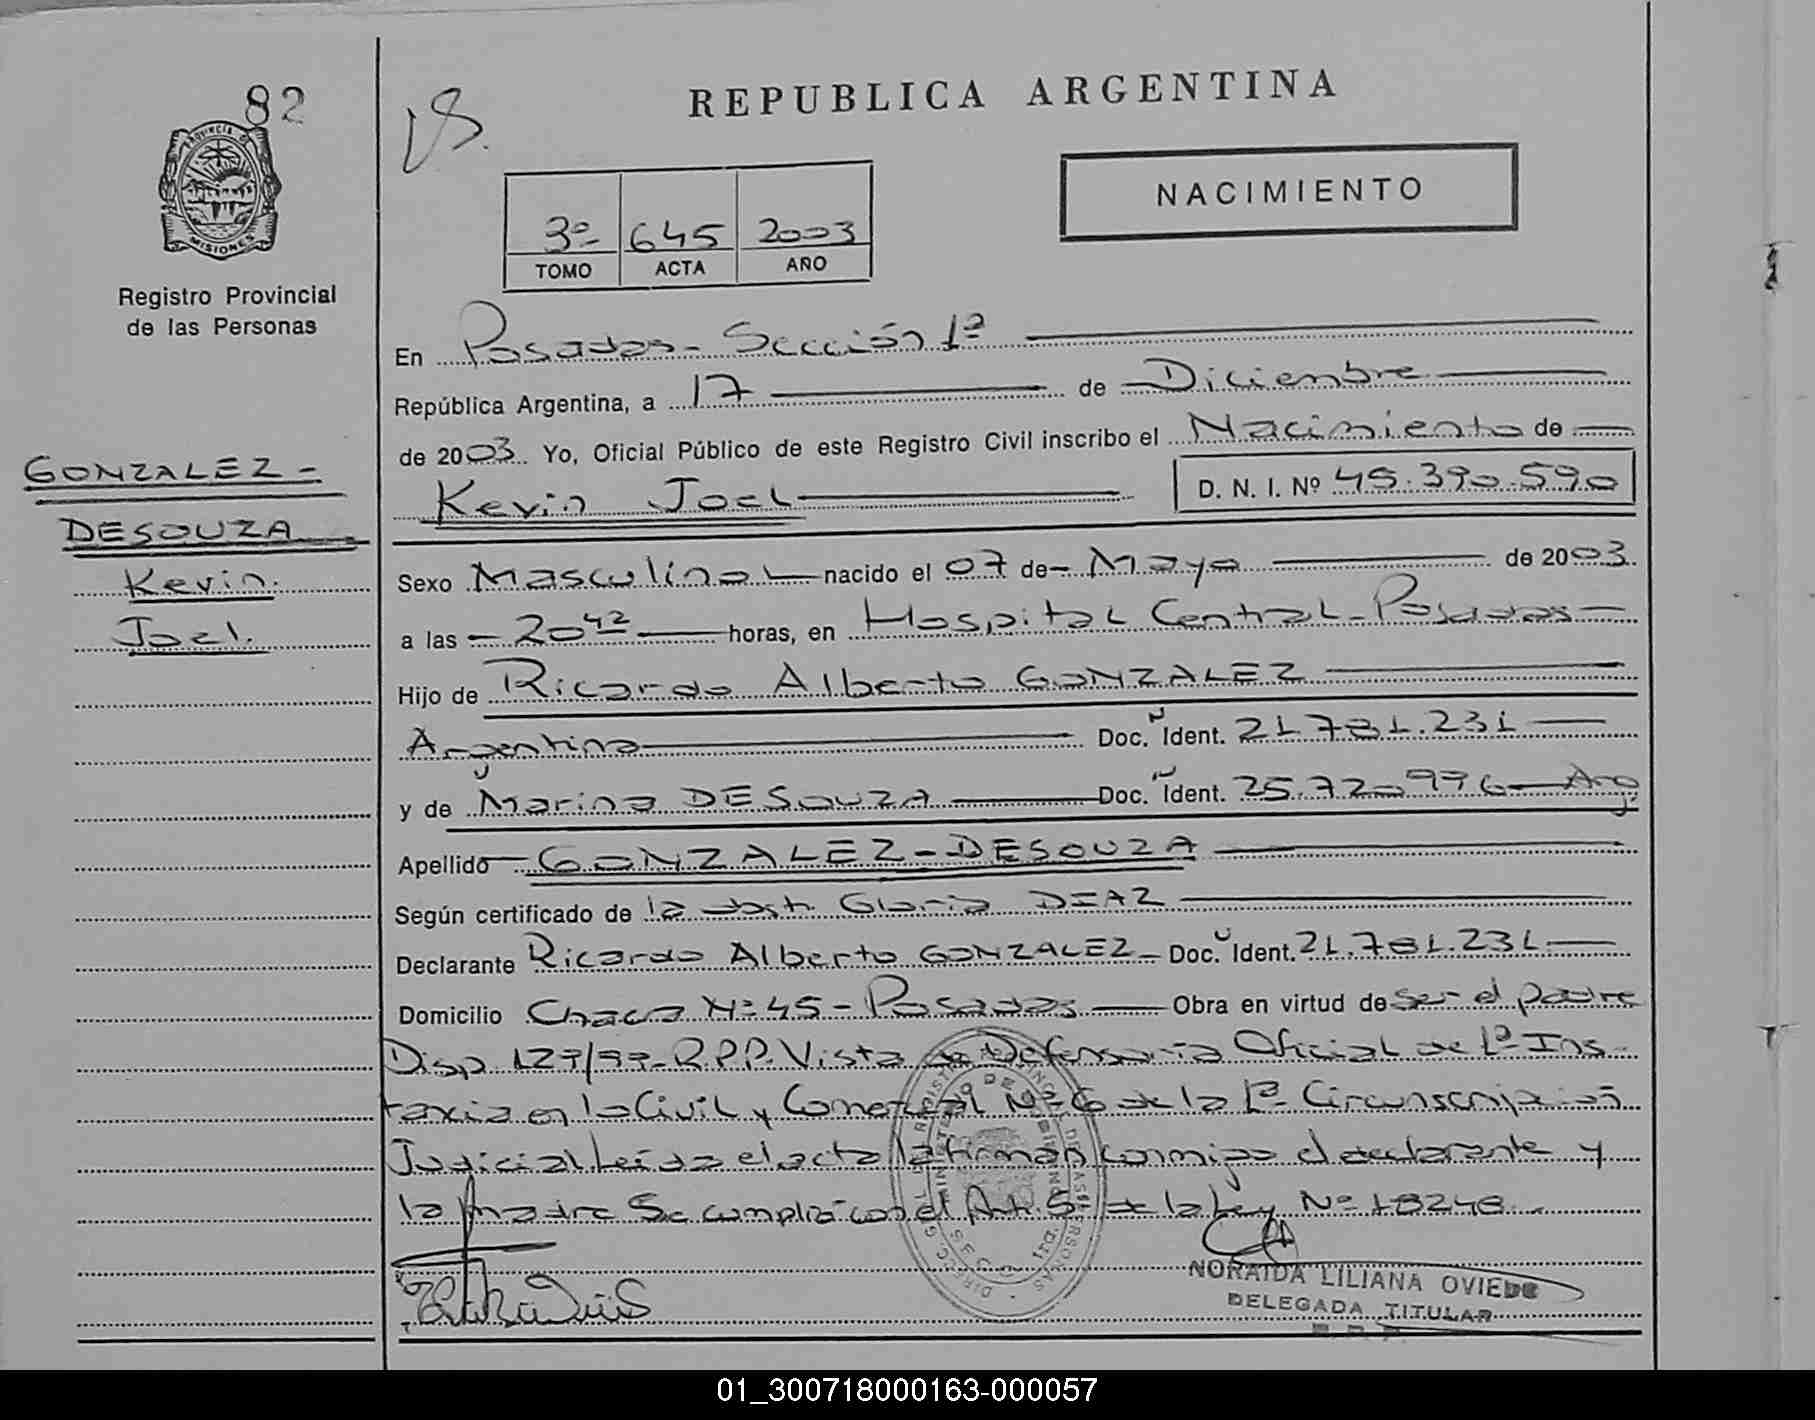 82
PROVINCIA DE
MISIONES
Registro Provincial
de las Personas
GONZALEZ-
DESOUZA
Kevin
Joel.
REPUBLICA ARGENTINA
NACIMIENTO
3º 645 2003
TOMO ACTA AÑO
En Posadas- Sección 1ª
República Argentina, a 17 de Diciembre
de 2003. Yo, Oficial Público de este Registro Civil inscribo el Nacimiento de
Kevin Joel D. N. I. Nº 45.390.590
Sexo Masculino nacido el 07 de Mayo de 2003
a las 20 42 horas, en Hospital Central-Posadas
Hijo de Ricardo Alberto GONZALEZ
Argentina Doc. Ident. 21.781.231
y de Marina DESOUZA Doc. Ident. 25.720.996 Arg.
Apellido GONZALEZ-DESOUZA
Según certificado de la obst. Gloria DIAZ
Declarante Ricardo Alberto GONZALEZ- Doc. Ident. 21.781.231
Domicilio Chacra Nº 45 - Posadas Obra en virtud de ser el padre
Disp. 127/97-R.P.P. Vista de Defensoria Oficial de 1ª Ins-
tancia en lo Civil y Comercial Nº 6 de la 1ª Circunscripción
Judicial Leida el acta la firman conmigo el declarante y
la madre Se cumplió con el Art. 5º de la Ley Nº 18248.
NORAIDA LILIANA OVIEDO
DELEGADA TITULAR
R. P. P.
01_300718000163-000057